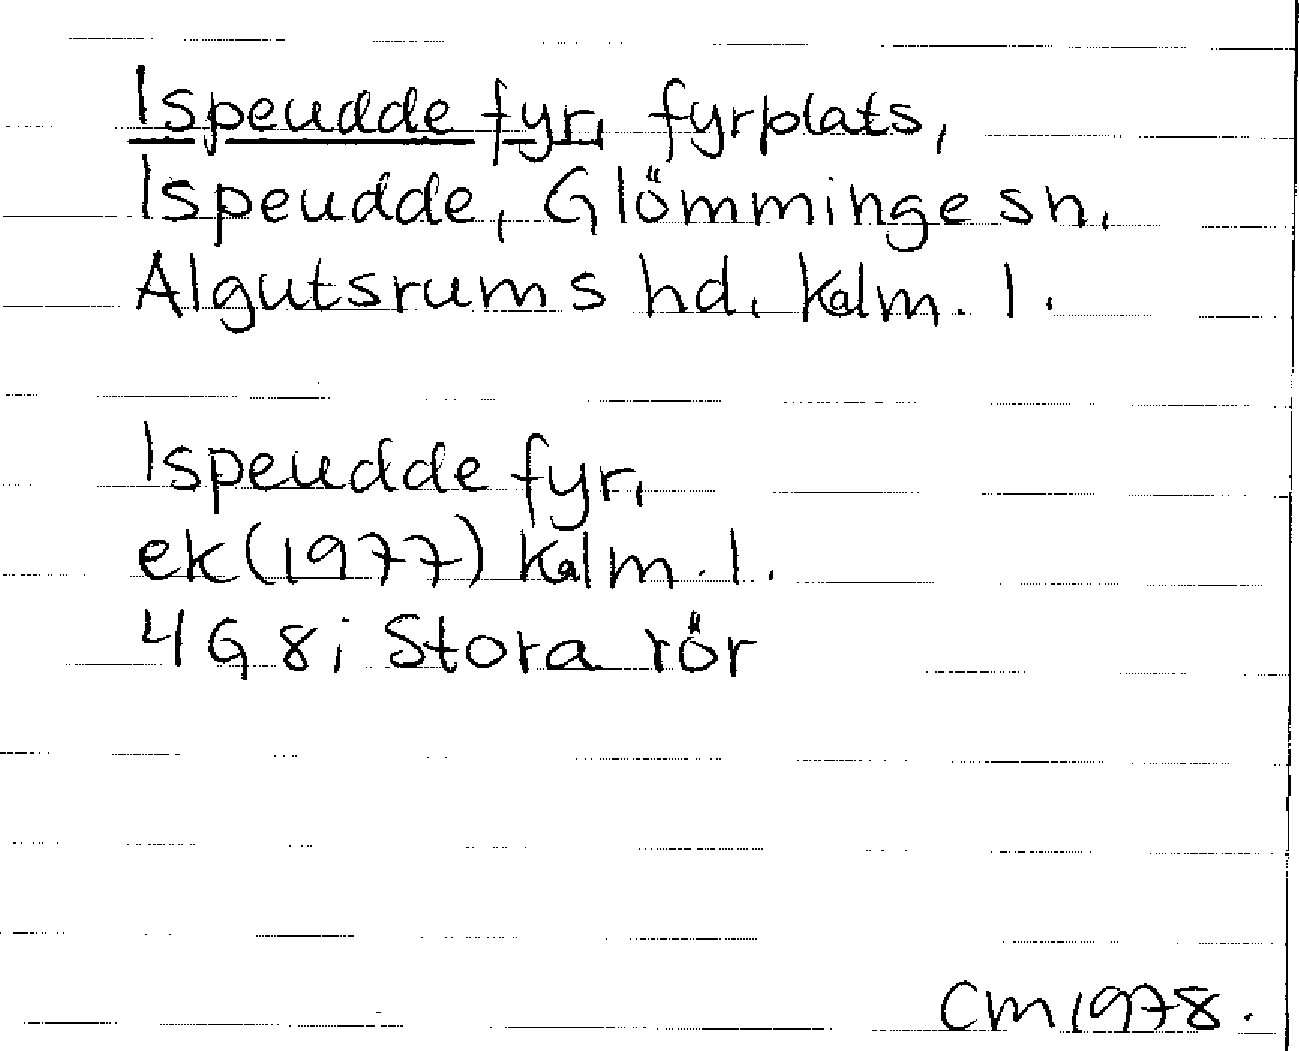 Ispeudde fyr, fyrplats,
Ispeudde, Glömminge sn,
Algutsrums hd, Kalm. l.
Ispeudde fyr,
ek (1977) Kalm. l.
4G 8i Stora rör
CM 1978.